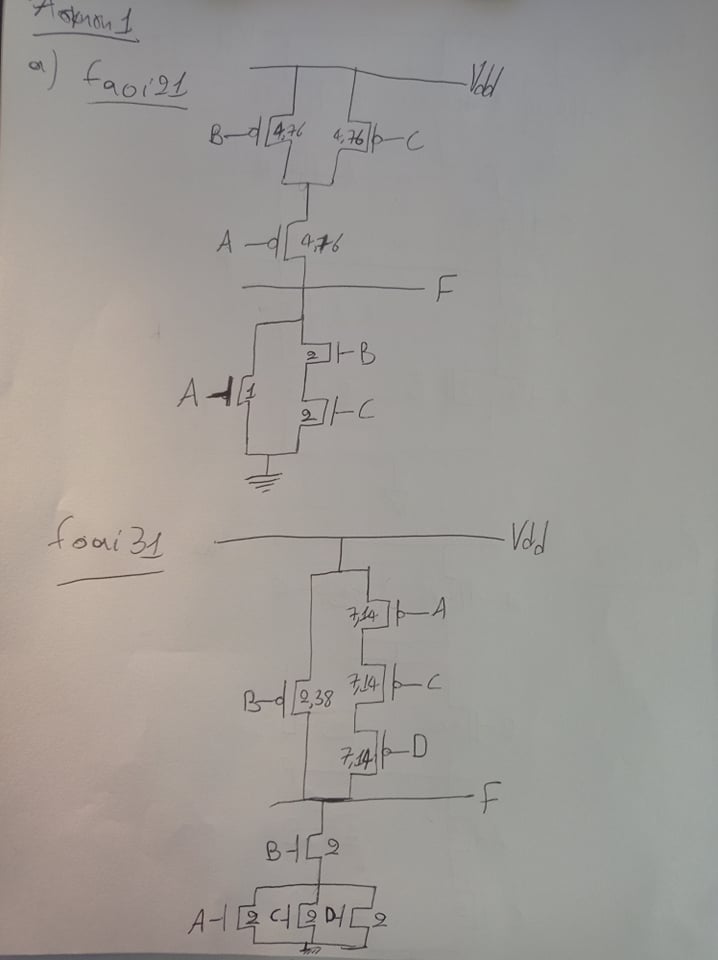 Άσκηση 1
α) faoi21
Vdd
B 4,76 4,76 C
A 4,76
F
2 B
A 1
2 C
foai31
Vdd
7,14 A
B 2,38 7,14 C
7,14 D
F
B 2
A 2 C 2 D 2